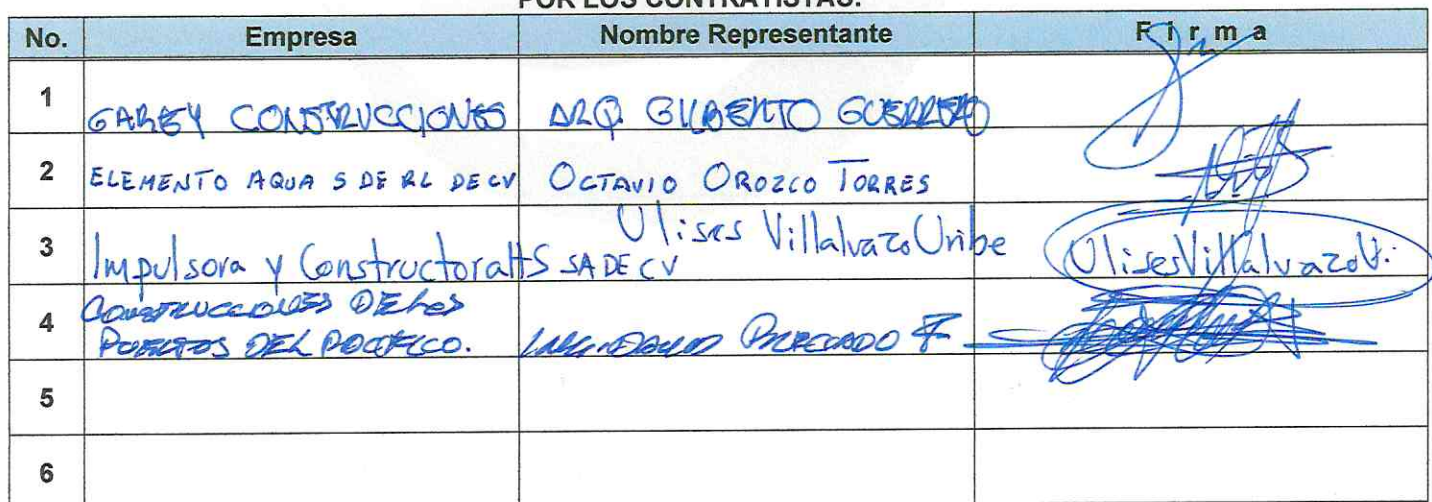 POR LOS CONTRATISTAS:
No. Empresa Nombre Representante F i r m a
1 GAREY CONSTRUCCIONES ARQ. GILBERTO GUERRERO
2 ELEMENTO AQUA S DE RL DE CV OCTAVIO OROZCO TORRES
3 Impulsora y Constructora HS SA DE CV Ulises Villalvazo Uribe Ulises Villalvazo U.
4 CONSTRUCCIONES DE LOS
PUERTOS DEL PACIFICO. PRECIADO F
5
6